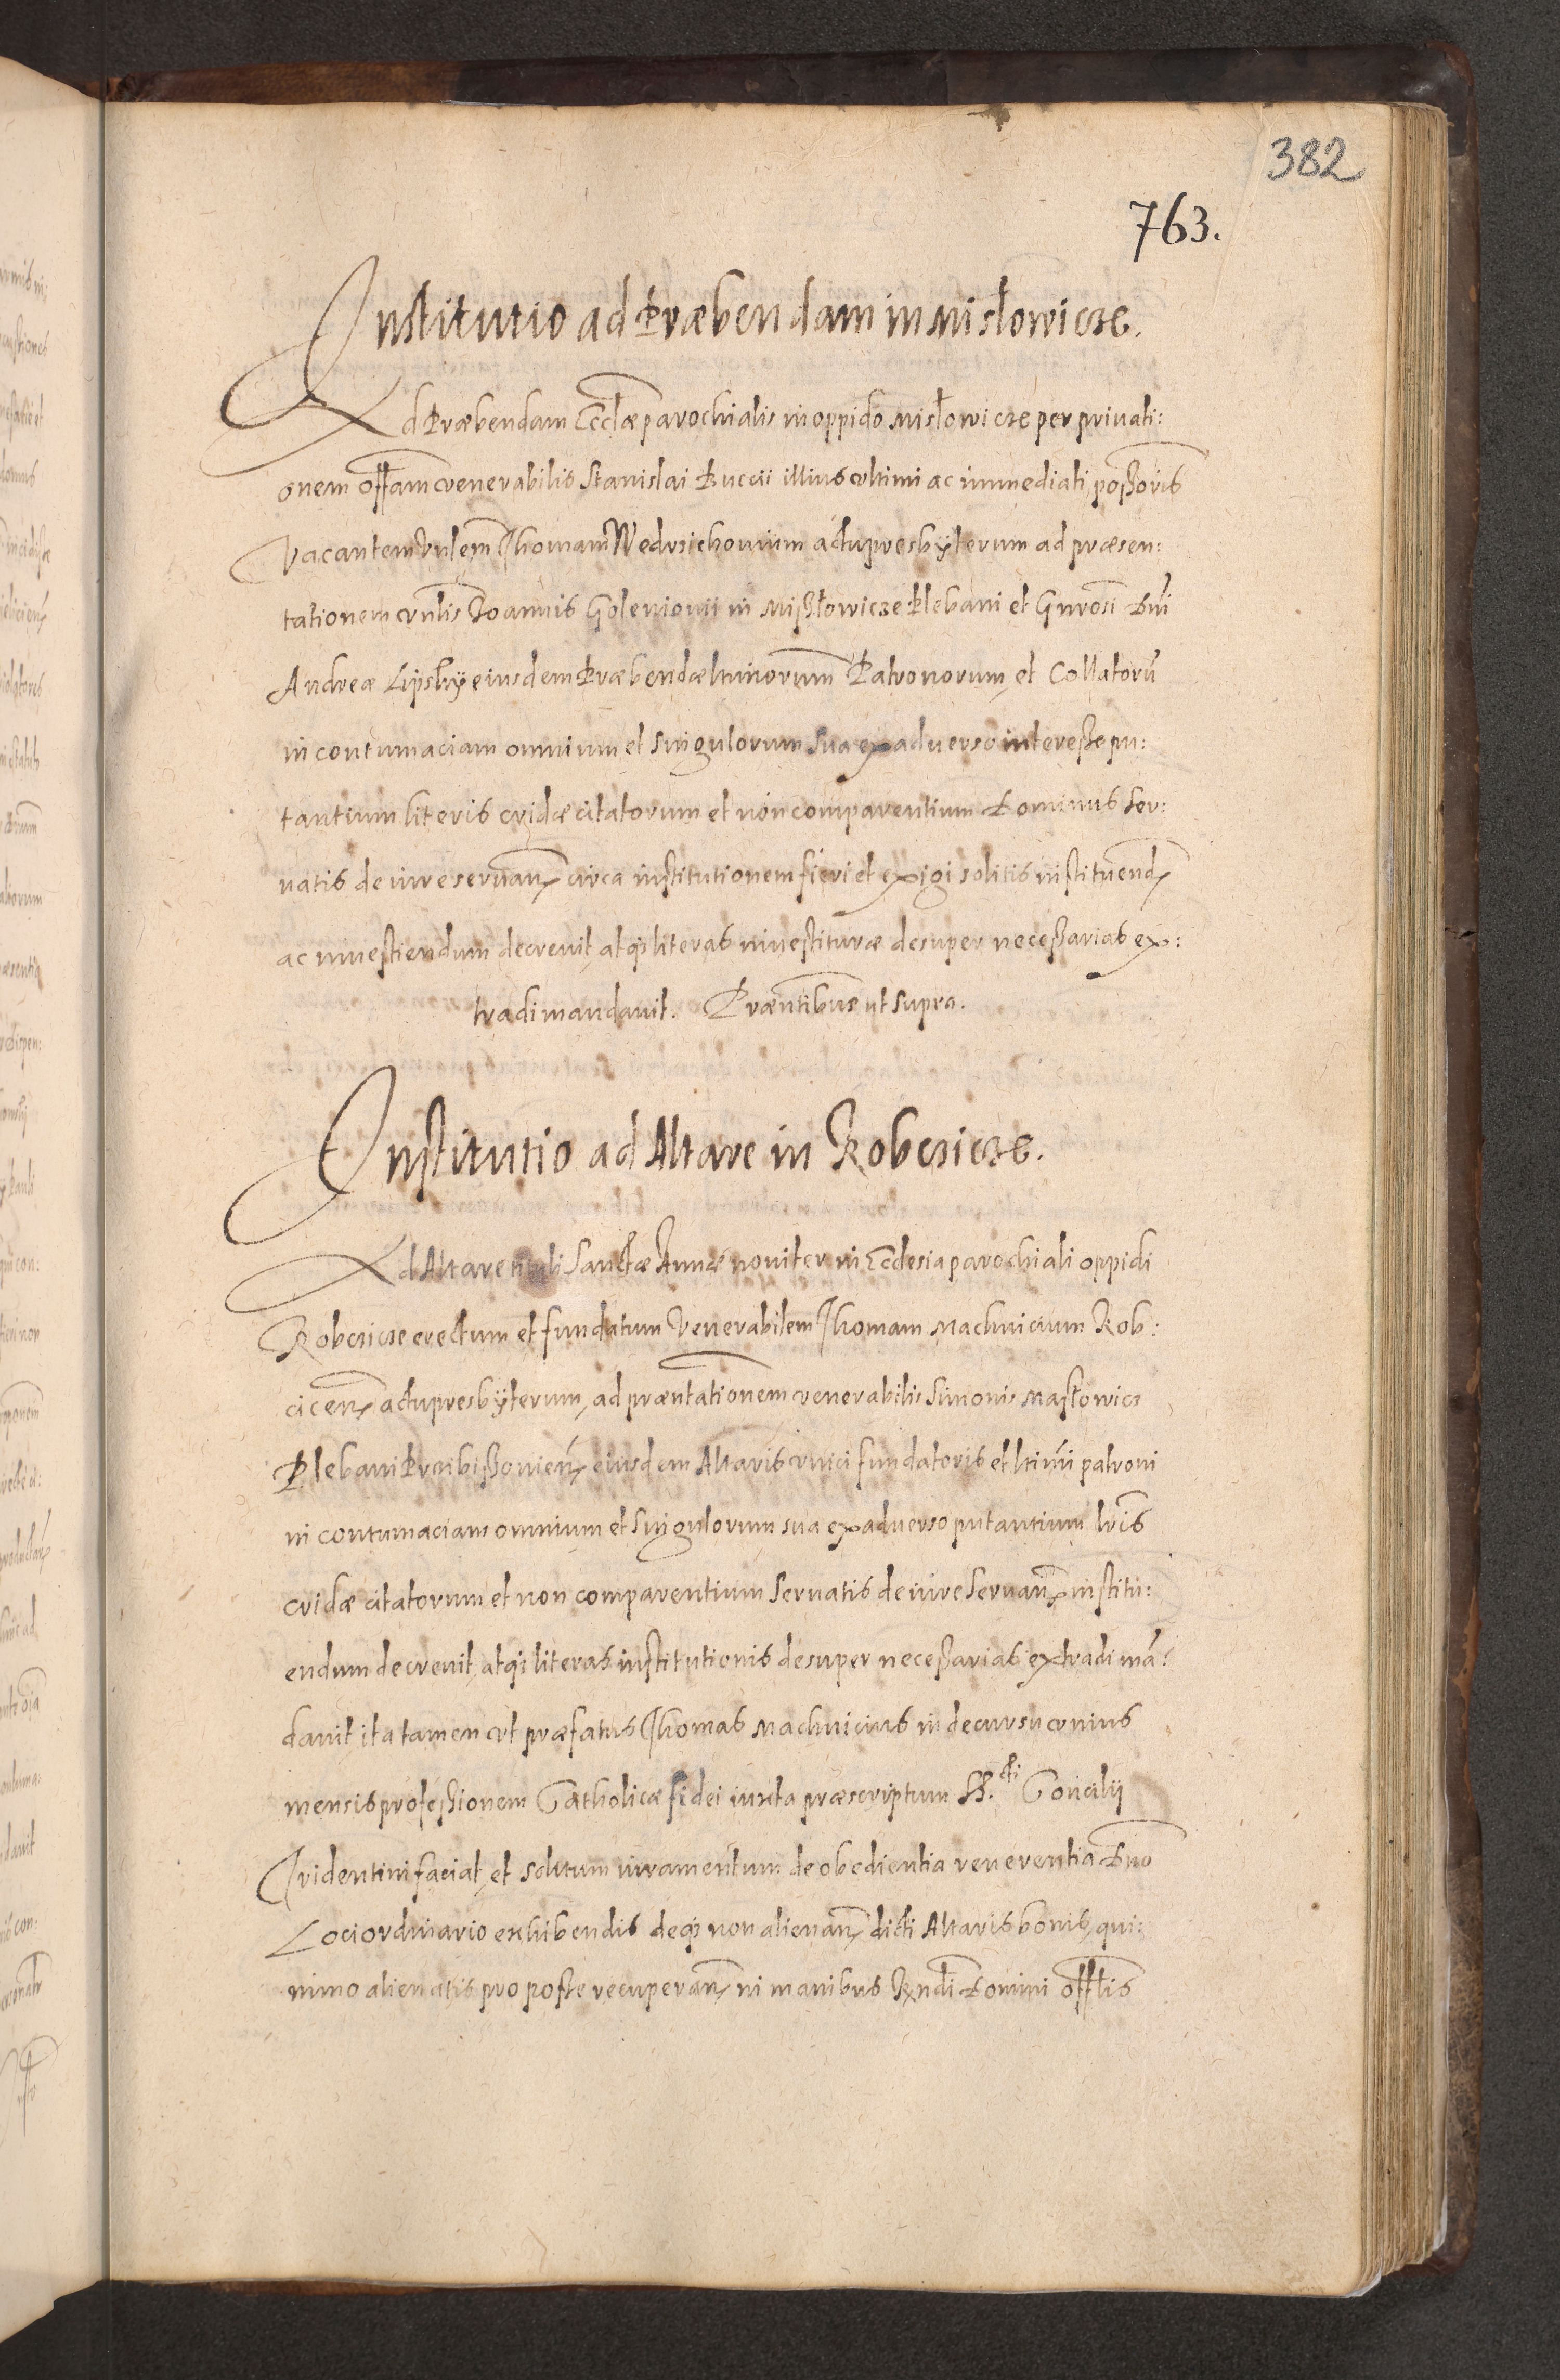 382
763.
Institutio ad Præbendam in Misłowicze.
Ad Præbendam Eccłæ parochialis in oppido Misłowicze per priuati:
onem offłam venerabilis Stanislai Buccii illius vltimi ac immediati poßoris
Vacantem Vnłem Thomam Wedrsichonium actu presbÿterum ad præsen:
tationem vnłis Joannis Golenionii in Mißłowicze Plebani et Gnrosi Dni
Andreæ Lipskÿ eiusdem Præbendæ ltimorum Patronorum et Collatorũ
in contumaciam omnium et singulorum sua ex aduerso intereße pu:
tantium literis cridæ citatorum et non comparentium Dominus ser:
uatis de iure seruan̄ circa institutionem fieri et exigi solitis instituend
ac inuestiendum decreuit, atq̨ literas inuestituræ desuper neceßarias ex:
tradi mandauit. Præntibus ut supra.
Institutio ad Altare in Kobczicze.
Ad Altare tituli Sanctæ Annæ nouiter in Ecclesia parochiali oppidi
Kobczicze erectum et fundatum Venerabilem Thomam Machnicium Kob:
cicen̄ actu presbÿterum, ad præntationem venerabilis Simonis Masłowicz
Plebani eiusdem Altaris vnici fundatoris et ltimi patroni
in contumaciam omnium et singulorum sua ex aduerso putantium lr̄is
cridæ citatorum et non comparentium seruatis de iure seruan̄ institu:
endum decreuit, atq̨ literas institutionis desuper neceßarias extradi mā:
dauit ita tamen vt præfatus Thomas Machnicius in decursu vnius
mensis profeßionem Catholicæ fidei iuxta præscriptum SS.cti Concilij
Tridentini faciat, et solitum iuramentum de obedientia reuerentia Dno
Loci ordinario exhibendis deq̨ non alienan̄ dicti Altaris bonis, qui:
nimo alienatis pro poße recuperan̄ in manibus Rndi Domini offłis